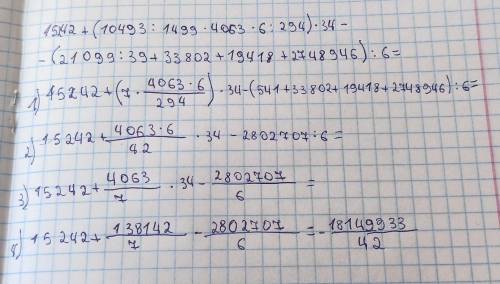 15242 + (10493 : 1499 · 4063 · 6 : 294) · 34 -
- (21099 : 39 + 33802 + 19418 + 2748946) : 6 =
1) 15242 + (7 · 4063·6/294) · 34 - (541 + 33802 + 19418 + 2748946) : 6 =
2) 15242 + 4063·6/42 · 34 - 2802707 ÷ 6 =
3) 15242 + 4063/7 · 34 - 2802707/6 =
4) 15242 + 138142/7 - 2802707/6 = - 18149933/42